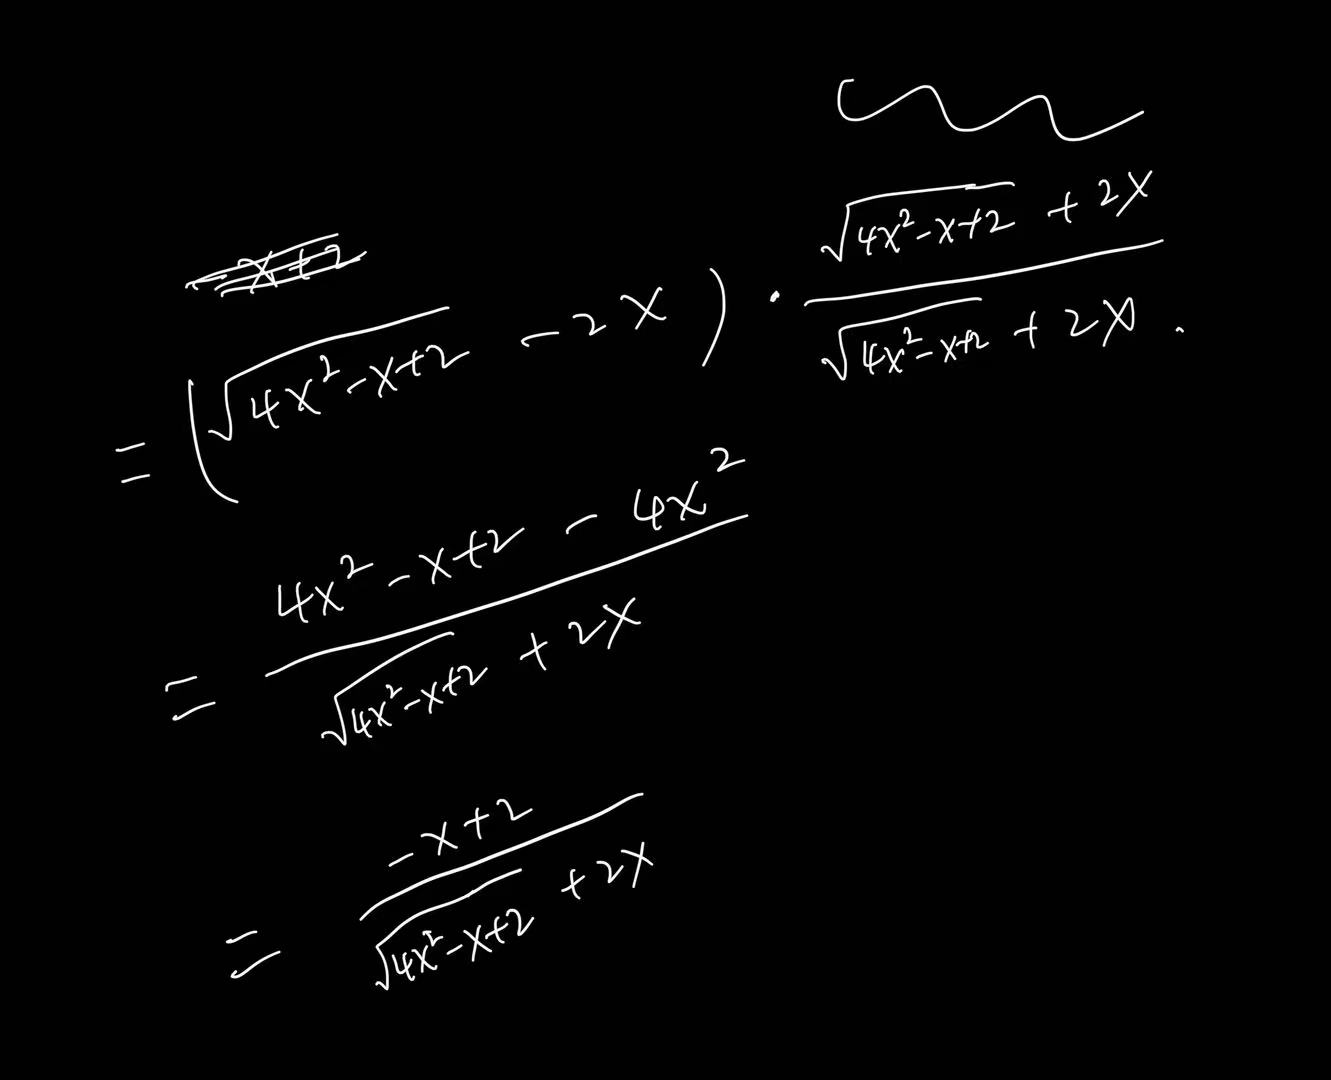 = (√(4x²-x+2) - 2x) · (√(4x²-x+2) + 2x)/(√(4x²-x+2) + 2x) .
= (4x²-x+2 - 4x²)/(√(4x²-x+2) + 2x)
= (-x+2)/(√(4x²-x+2) + 2x)